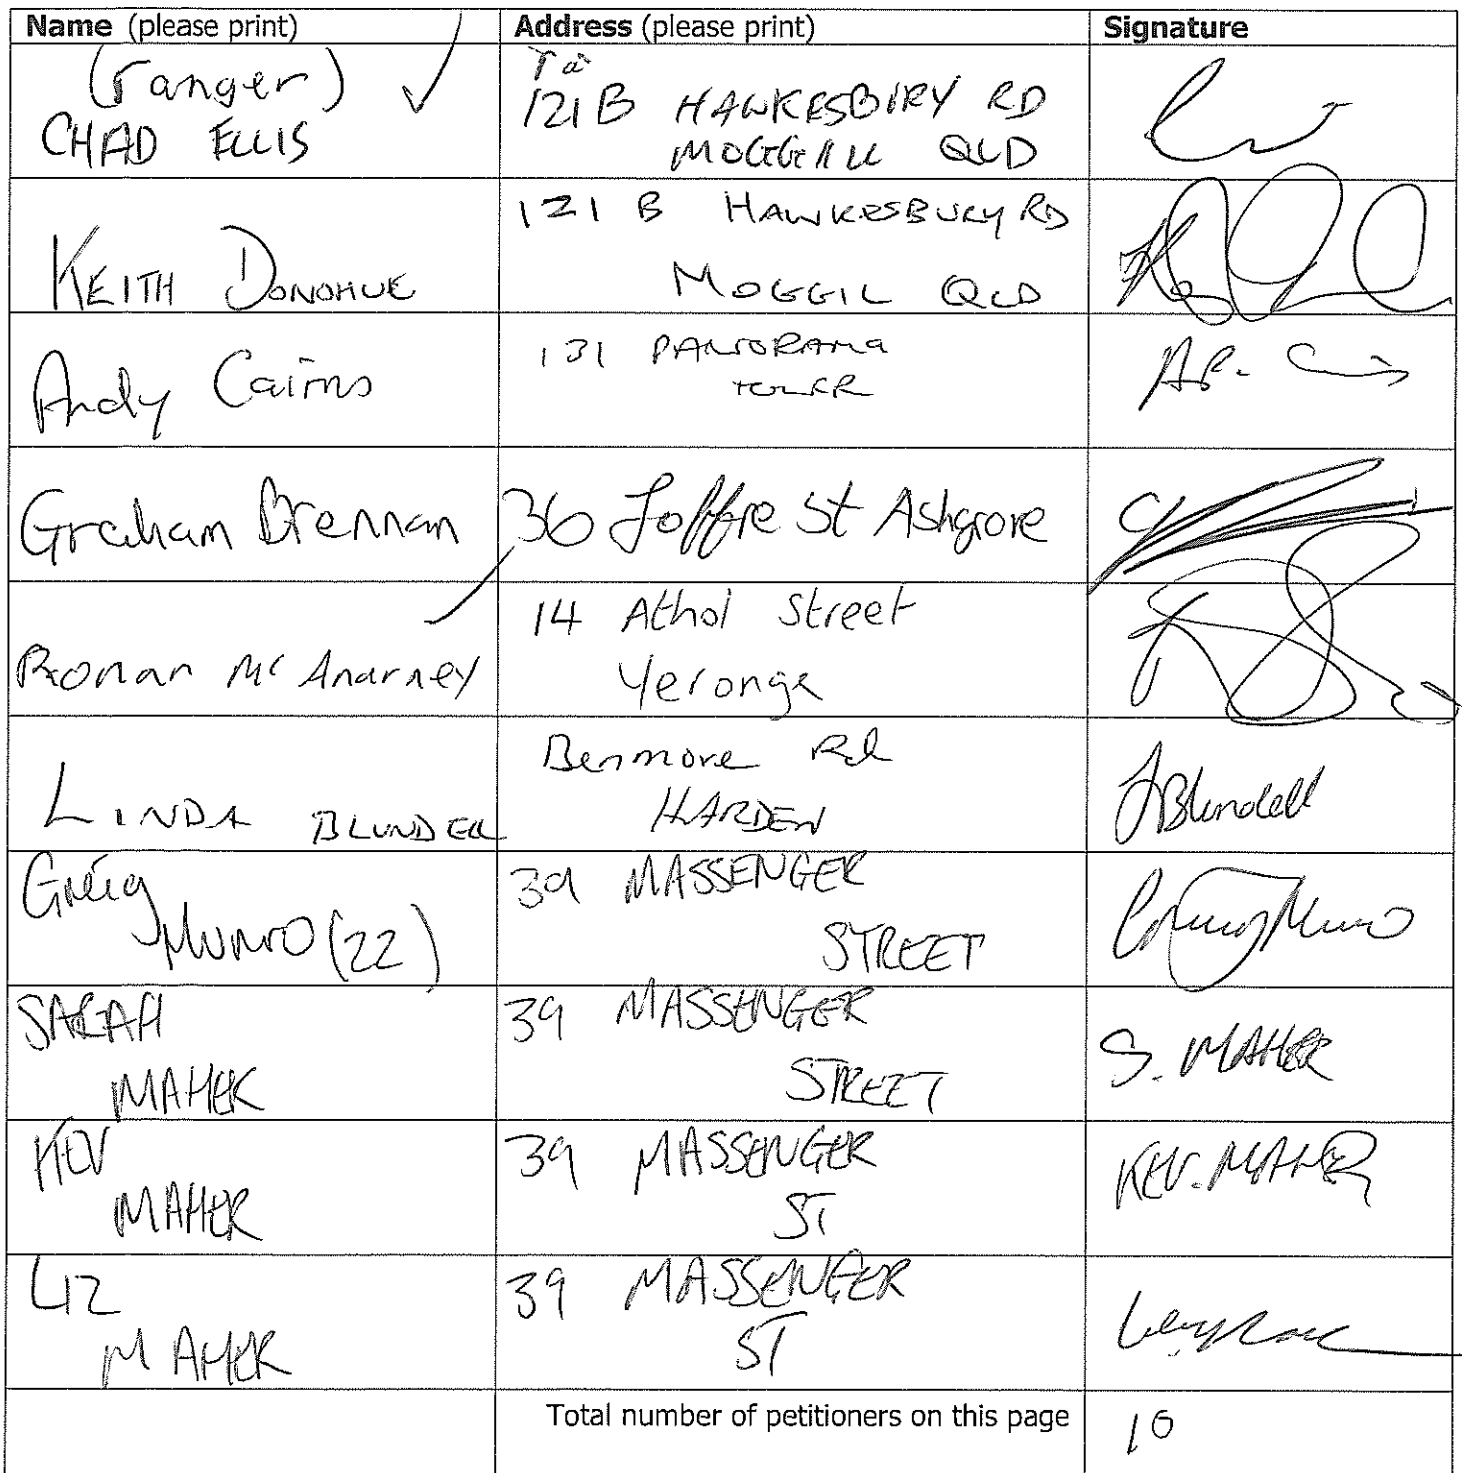 Name (please print) Address (please print) Signature
(ranger)
CHAD ELLIS
121 B HAWKESBURY RD
MOGGILL QLD
KEITH DONOHUE
121 B HAWKESBURY RD
MOGGIL QLD
Andy Cairns
131 PANORAMA
AR. C
Graham Brennan 36 Joffre St Ashgrove
Ronan McAnarney
14 Athol Street
Yeronga
LINDA BLUNDELL
Benmore Rd
HARDEN
LBlundell
Greig
Munro (22)
39 MASSENGER
STREET
Greig Munro
SARAH
MAHER
39 MASSENGER
STREET
S. MAHER
KEV
MAHER
39 MASSENGER
ST
KEV. MAHER
LIZ
MAHER
39 MASSENGER
ST
Total number of petitioners on this page 10